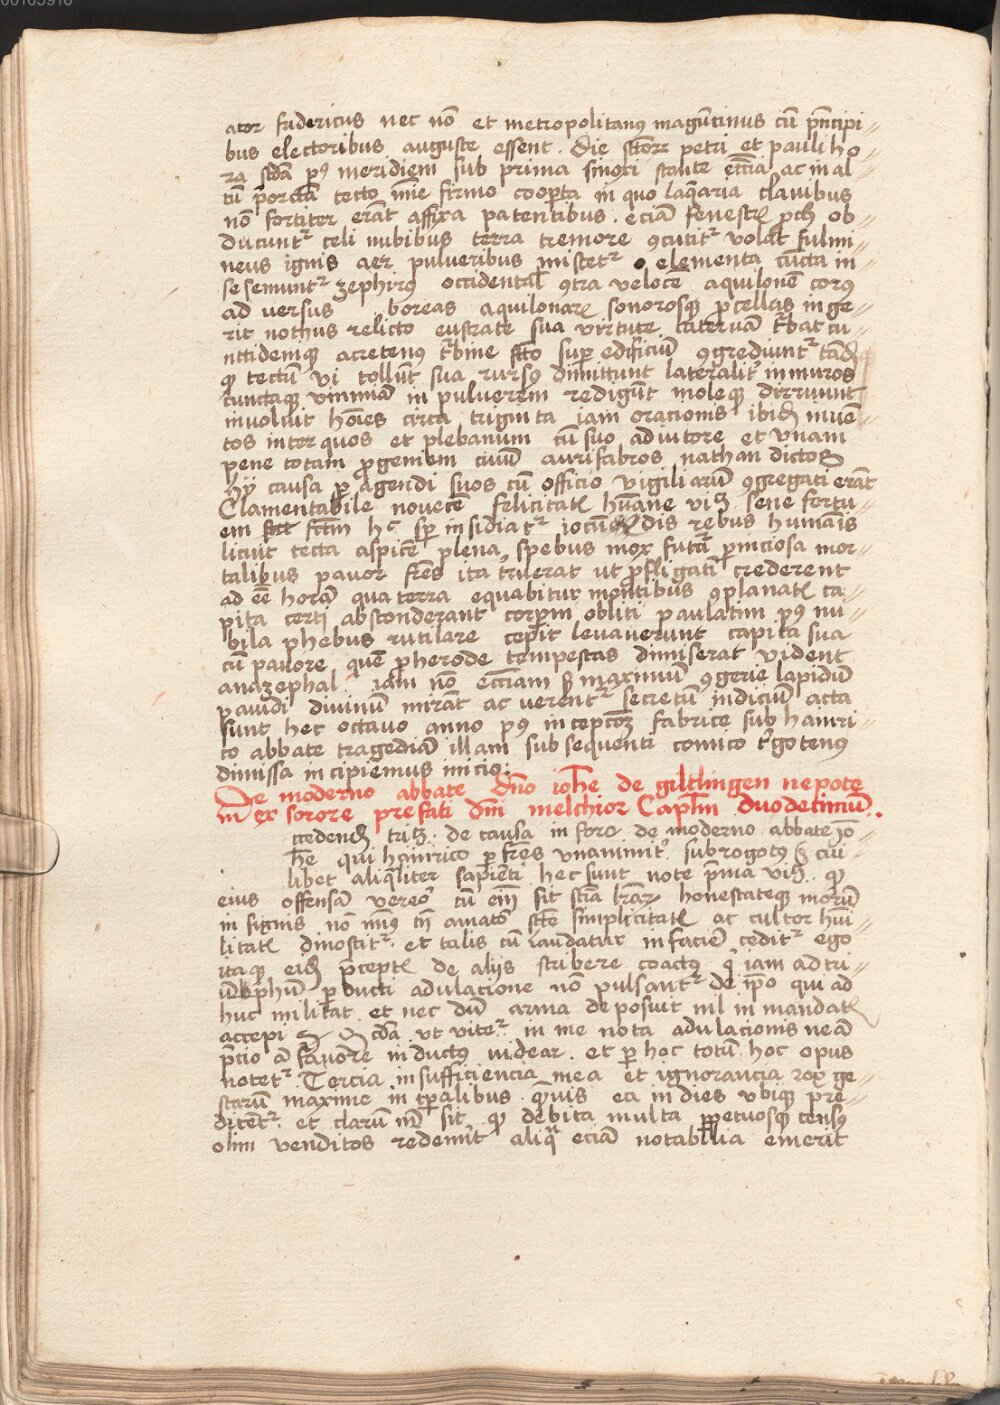 00103910
ator fridericus nec nō et metropolitanus magūtinus cū pn̄cipi
bus electoribus auguste essent. Die sctorꝝ petri et pauli ho
ra scdā pꝰ meridiem sub prima sinori stante eccīa ac in al
tū porctā tecto mīe firmo coopta in quo laqearia clavibus
nō fortiter erāt affixa patentibus. eciā fenestr̄ pch ob
ducuntr celi nubibus terra tremore ꝯcutitr volat fulmi
neus ignis aer pulveribus mistetr elementa cūcta in
se semuntr zephirꝰ occidental ꝯtra veloce aquilonē corꝰ
ad versus boreas aquilonare sonorosqꝫ pcellas inge
rit nothus relicto eustrate sua virtute catervā tbat cu
nctidemqꝫ acretenus tbine scto sup edificiū ꝯgrediuntr tādē
qꝫ tectū vi tollūt sua rursꝰ dimittunt lateralit in muros
cunctaqꝫ vnimā in pulverem redigūt moleqꝫ dirruunt
involuit hōies circa triginta iam oracionis ibidē invē
tos inter quos et plebanum cū suo adiutore et vnam
pene totam pgeniem civiū aurifabros nathan dictos
Hÿ causa pagendi suos cū officio vigiliarū ꝯgregati erāt
Clamentabile novecē felicitatē hūane viꝫ sene fortu
em fctm hc sp insidiatr iocūdis rebus humanis
licuit tecta aspicē plena spebus mox futuā pniciosa mor
talibus pavor frēs ita truerat ut pfligati crederent
ad eē horā qua terra equabitur montibus ꝯplanatē ca
pita certi abstonderant corpm obliti paulatim pꝰ nu
bila phebus rutilare cepit levaverunt capita sua
cū pavore quē pherode tempestas dimiserat vident
anazephal iam nō eccīam sꝫ maximū ꝯgerie lapidū
pavidi divinū mirāt ac verentr secretū iudiciū acta
sunt hec octavo anno pꝰ inceptōꝫ fabrice sub hainri
co abbate tragediā illam subsequenti comico tgotenꝰ
dimissa incipiemus inicio:
De moderno abbate dn̄o ioh̄e de giltlingen nepote
ex sorore prefati dn̄i melchior Capl̄m duodecimū.
ccedendē triꝫ de causa in foro de moderno abbate Jo
h̄e qui hainrico p frēs vnanimit subrogotus sꝫ cui
libet aliqꝫliter sapienti hec sunt note pma viꝫ qꝫ
eius offensā vereor cū eīm sit sciā lrārꝫ honestateqꝫ morū
insignis nō mīꝰ tn̄ amatō scte simplicitatē ac cultor hūi
litatē dinostitr et talis cū laudatur in faciē ceditr ego
itaqꝫ eidē pceptē de alijs scribere coactus qi iam ad tri
ūphū pducti adulacione nō pulsantr de ip̄o qui ad
huc militat et nec dū arma deposuit nil in mandatē
accepi cdā ut vitetr in me nota adulacionis neā
pcio a favore inductus videar et phoc totū hoc opus
notetr Tercia insufficiencia mea et ignorancia rox ge
starū maxime in tpalibus qmvis eā in dies ubiqꝫ pre
dicētr et clarū m̄ sit qꝫ debita multa ppetuosqꝫ census
olim venditos redemit aliqꝫ eciā notabilia emerit